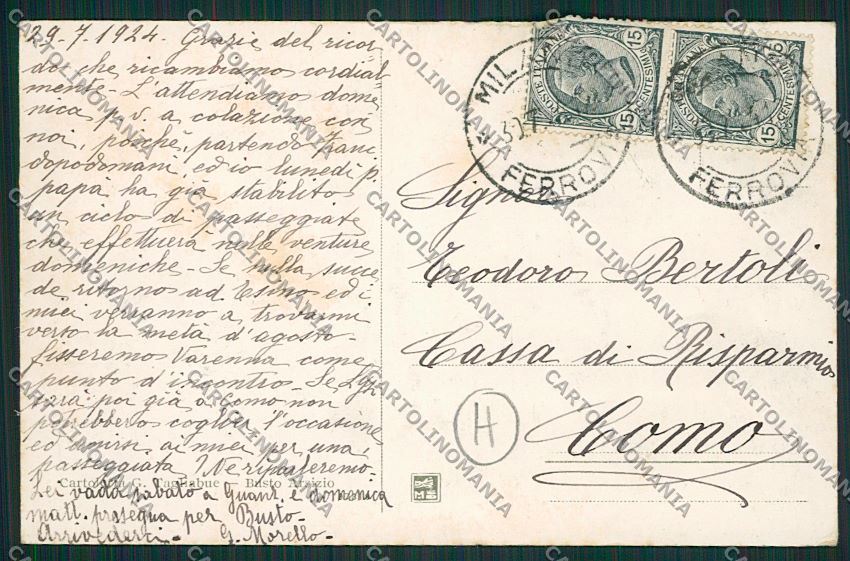 29-7-1924. Grazie del ricor
do che ricambiamo cordial
mente - L'attendiamo dome
nica p. v. a colazione con
noi, poichè, partendo Franci
dopodomani, ed io lunedì p.
papà ha già stabilito
un ciclo di passeggiate
che effettuerà nelle venture
domeniche - Se nulla succe
de ritorno ad Esino ed i
miei verranno a trovarmi
verso la metà d'agosto -
fisseremo Varenna come
punto d'incontro - Se
sarà poi già a Como non
potrebbero coglier l'occasione
ed unirsi ai miei per una
passeggiata? Ne riparleremo.
Cartoleria G. Tagliabue - Busto Arsizio
vado sabato a e domenica
matt. proseguo per Busto -
Arrivederci - G. Morello -
POSTE ITALIANE
15 CENTESIMI 15
POSTE ITALIANE
15 CENTESIMI 15
MILANO
FERROVIA
FERROVIA
Signor
Teodoro Bertoli
Cassa di Risparmio
Como
H
CARTOLINOMANIA